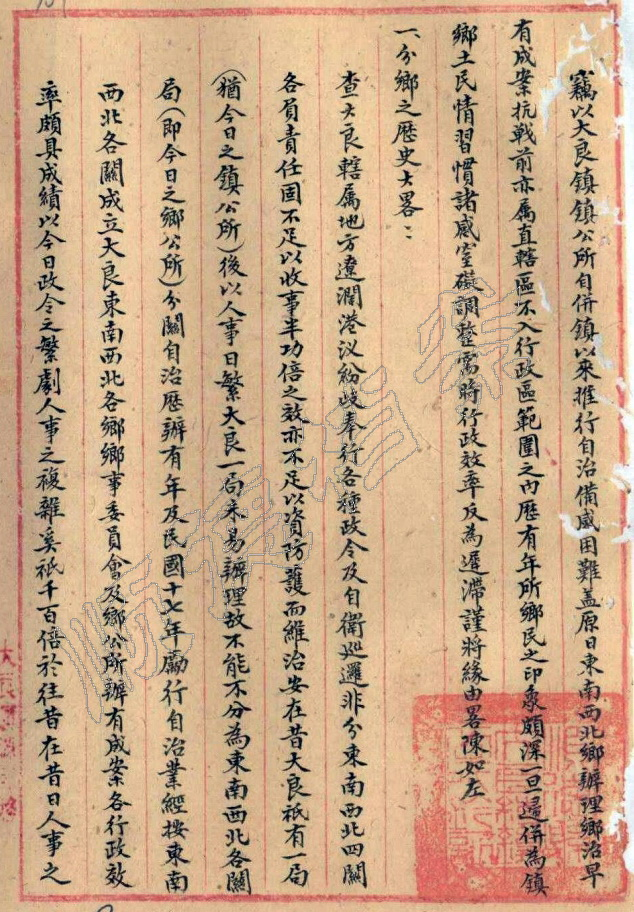 竊以大良鎮鎮公所自併鎮以來推行自治備感困難蓋原日東南西北鄉辦理鄉治早
有成案抗戰前亦屬直轄區不入行政區範圍之內歷有年所鄉民之印象頗深一旦歸併為鎮
鄉土民情習慣諸感窒礙調整需時行政效率反為遲滯謹將緣由畧陳如左
一、分鄉之歷史大畧：
查大良轄属地方遼濶港汊紛歧奉行各種政令及自衛巡邏非分東南西北四關
各負責任固不足以收事半功倍之效亦不足以資防護而維治安在昔大良祇有一局
（猶今日之鎮公所）後以人事日繁大良一局未易辦理故不能不分為東南西北各關
局（即今日之鄉公所）分關自治歷辦有年及民國十七年勵行自治業經按東南
西北各關成立大良東南西北各鄉鄉事委員會及鄉公所辦有成案各行政效
率頗具成績以今日政令之繁劇人事之複雜奚祇千百倍於往昔在昔日人事之
順德档案